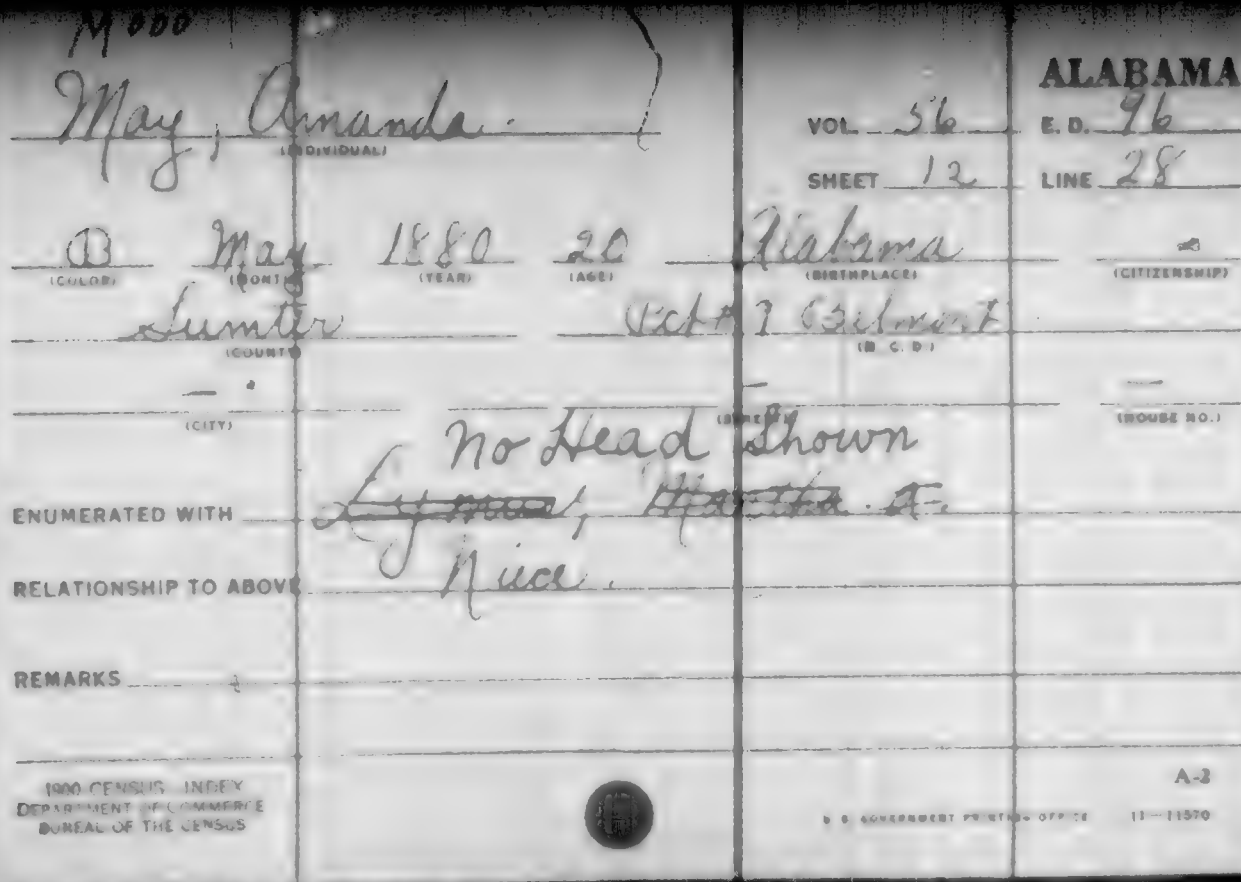 M000
ALABAMA
May, Amanda
(INDIVIDUAL)
VOL 56 E. D. 96
SHEET 12 LINE 28
B May 1880 20 Alabama
(COLOR) (MONTH) (YEAR) (AGE) (BIRTHPLACE) (CITIZENSHIP)
Sumter Pct # 7 Belmont
(COUNTY) (M. C. D.)
— —  —
(CITY) (STREET) (HOUSE NO.)
No Head Shown
ENUMERATED WITH
RELATIONSHIP TO ABOVE Niece.
REMARKS
1900 CENSUS INDEX
DEPARTMENT OF COMMERCE
BUREAU OF THE CENSUS
A-2
U. S. GOVERNMENT PRINTING OFFICE 11—11570